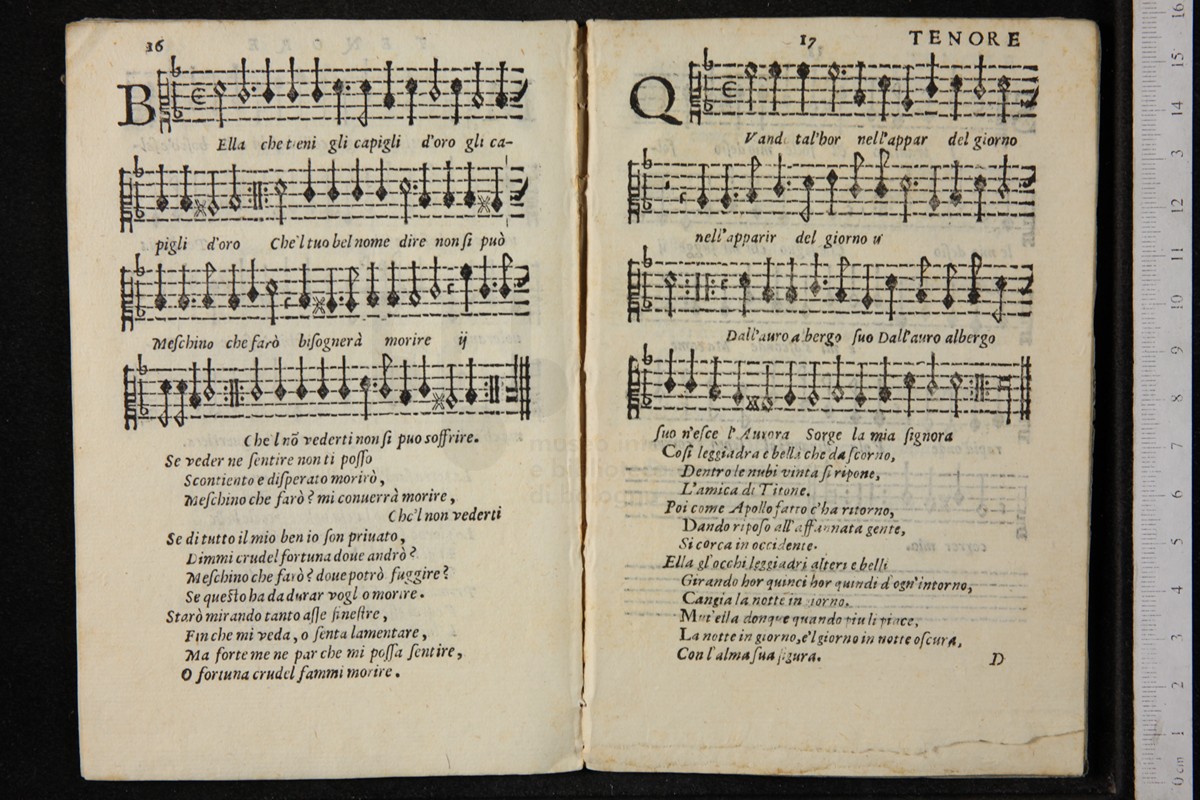 16
B
Ella che tieni gli capigli d'oro gli ca-
pigli d'oro Che'l tuo bel nome dire non si può
Meschino che farò bisognerà morire ij
Che'l nõ vederti non si puo soffrire.
Se veder ne sentire non ti posso
Scontiento e disperato morirò,
Meschino che farò? mi conuerrà morire,
Che'l non vederti
Se di tutto il mio ben io son priuato,
Dimmi crudel fortuna doue andrò?
Meschino che farò? doue potrò fuggire?
Se questo ha da durar vogl o morire.
Starò mirando tanto alle finestre,
Fin che mi veda, o senta lamentare,
Ma forte me ne par che mi possa sentire,
O fortuna crudel fammi morire.
17 TENORE
Q
Vand tal'hor nell'appar del giorno
nell'apparir del giorno
Dall'auro a bergo suo Dall'auro albergo
suo n'esce l'Aurora Sorge la mia signora
Cosi leggiadra e bella che da scorno,
Dentro le nubi vinta si ripone,
L'amica di Titone.
Poi come Apollo fatto c'ha ritorno,
Dando riposo all'affannata gente,
Si corca in occidente.
Ella gl'occhi leggiadri alteri e belli
Girando hor quinci hor quindi d'ogn'intorno,
Cangia la notte in giorno.
Mut'ella donque quando piu li piace,
La notte in giorno, e'l giorno in notte oscura,
Con l'alma sua figura.
D
0 cm 1 2 3 4 5 6 7 8 9 10 11 12 13 14 15 16